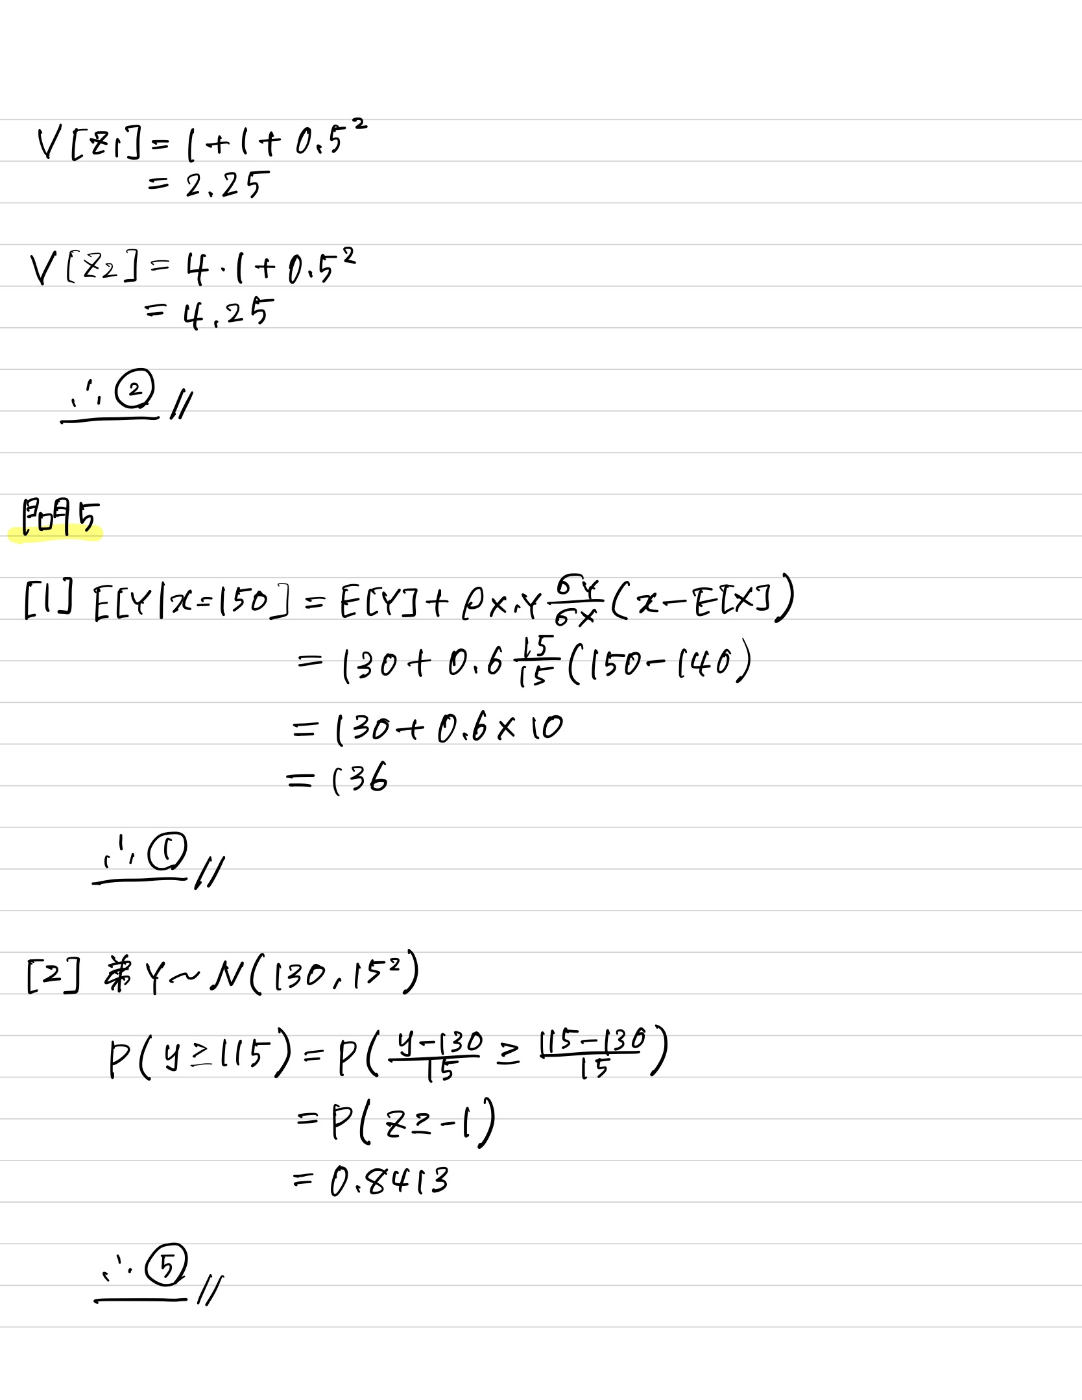 V[Z1] = 1 + 1 + 0.5²
= 2.25
V[Z2] = 4・1 + 0.5²
= 4.25
∴ ② //
問5
[1] E[Y|x=150] = E[Y] + ρx,Y σY/σX (x - E[X])
= 130 + 0.6 15/15 (150 - 140)
= 130 + 0.6 × 10
= 136
∴ ① //
[2] 弟 Y ~ N(130, 15²)
P(y ≥ 115) = P( (y-130)/15 ≥ (115-130)/15 )
= P(Z ≥ -1)
= 0.8413
∴ ⑤ //